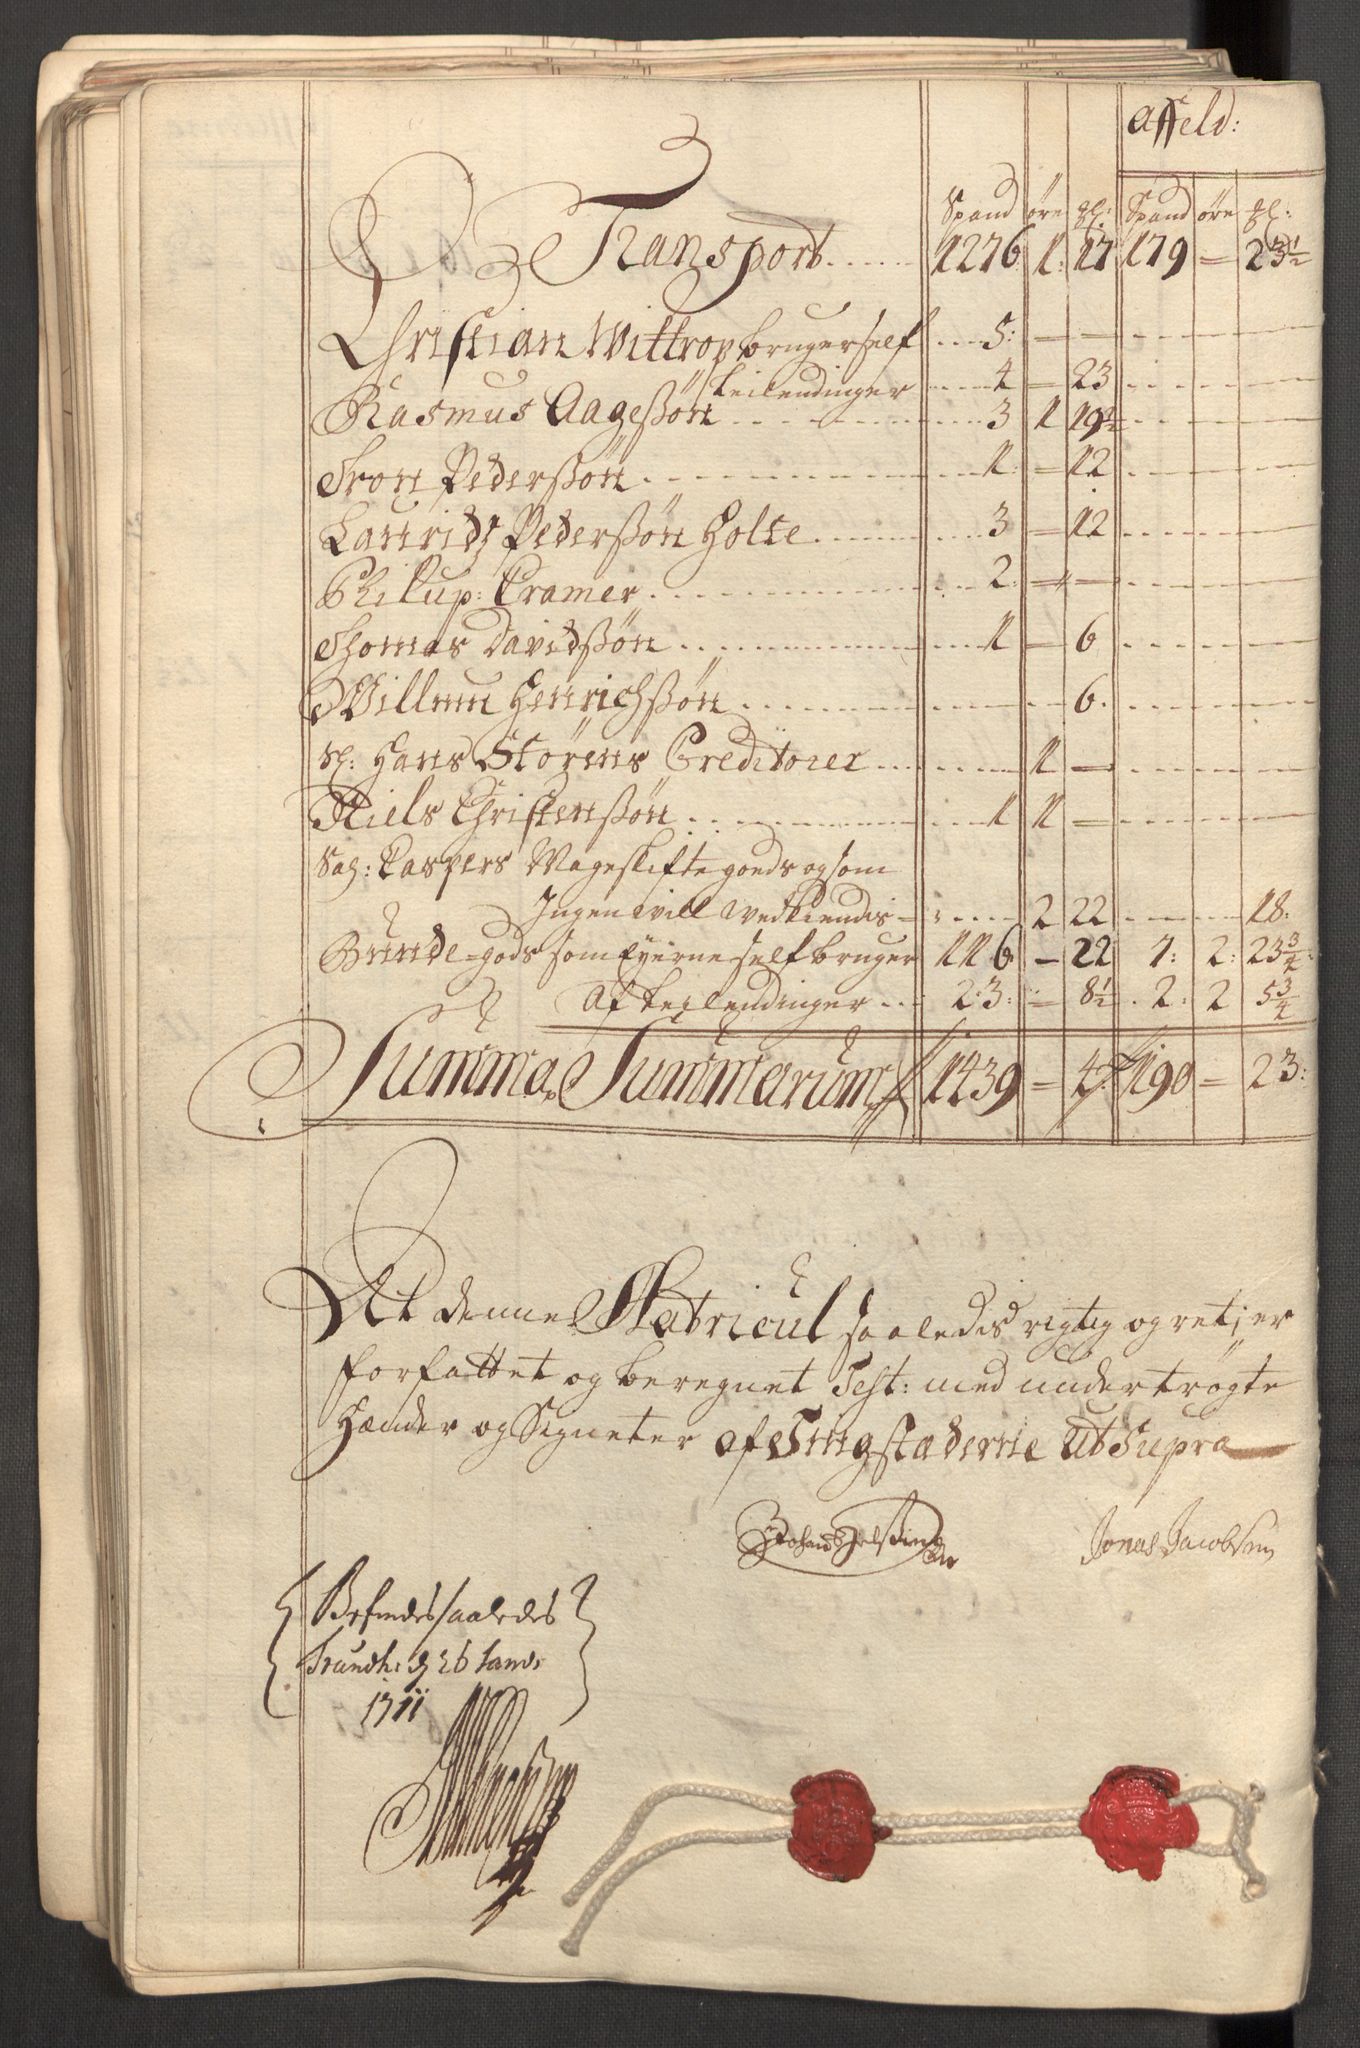 affeld:
Spand öre gl: Spand öre gl:
Transport ..... 1276 1: 17 179 = 23½
Christian Wittrop bruger self .... 5: — —
Leilendinger ..... 4 — 23
Rasmus Aageßøn ..... 3 1 19½
Tron Pederßøn ..... 1: — 12
Lauridz Pederßøn Holte ..... 3 — 12
Philup: Cramer ..... 2: — —
Thomas Davidßøn ..... 1 — 6
Willum Henrichßøn ..... 6.
Sl: Hans Störens Creditorer ..... 1 —
Niels Christenßøn ..... 1 1 —
Sal: Caspers Mageskifte goeds og som
Ingen will wedkiendis = ..... 2 22 ..... 18:
Bunde=gods som Eyerne self bruger 116 — 22 1: 2: 23¾:
Af Leylendinger ... 23: = 8½ . 2: 2 5¾
Summa Summarum 1439 = 4 190 = 23:
At denne Matricul saaledis rigtig og ret, er
forfattet og beregnet Test: med undertrögte
Hænder og Signeter af Tingstæderne Ut Supra
Jonas Jacobsen
Befindes saaledes
Trundh: d 26 Janv:
1711